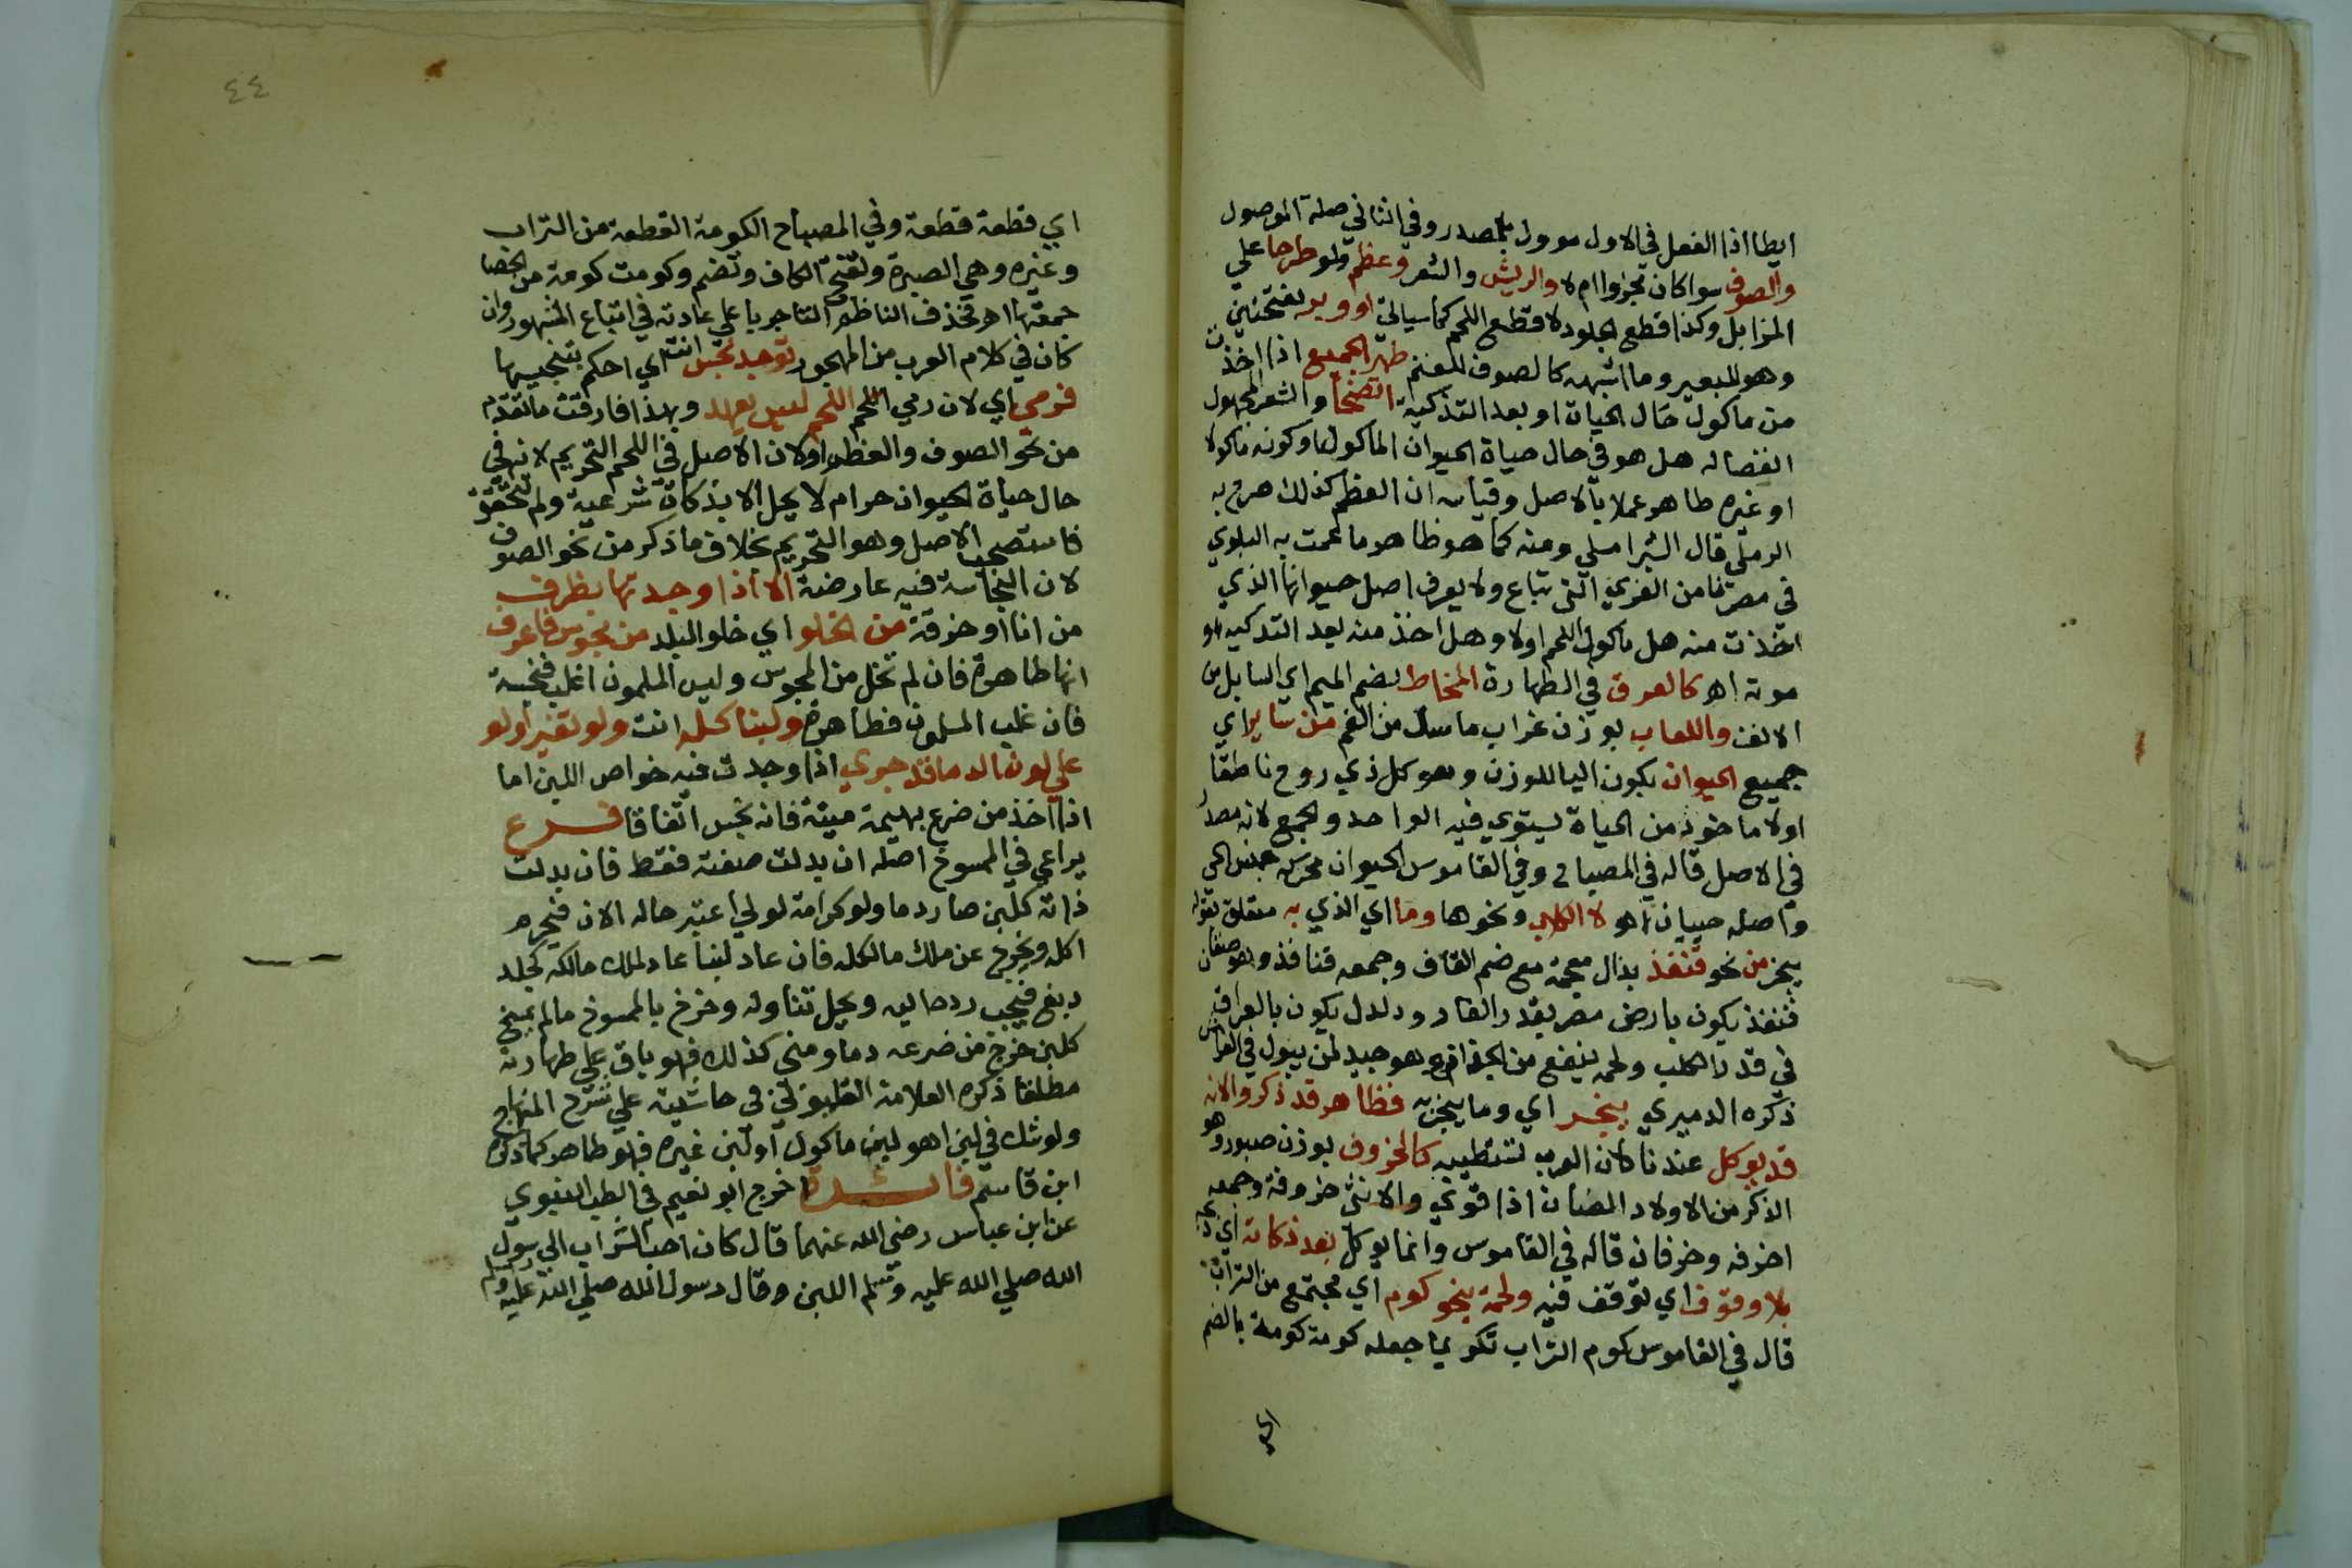 ايطا اذا الفعل في الاول موول بمصدر وفي الثاني صلة الموصول
والصوف سوا كان مجزوا ام لا والريش والشعر وعظم ولو طرحا علي
المزابل وكذا قطع الجلود لا قطع اللحم كما سياتي او وبر بفتحتين
وهو للبعير وما اشبهه كالصوف للغنم طهر الجميع اذا اخذت
من ماكول حال الحياة او بعد التذكية اتضحا والشعر المجهول
انفصاله هل هو في حال حياة الحيوان الماكول او كونه ماكولا
او غيره طاهر عملا بالاصل وقياسه ان العظم كذلك صرح به
الرملي قال الشبراملسي ومنه كما هو ظاهر ما عمت به البلوي
في مصرنا من الفري التي تباع ولا يعرف اصل حيوانها الذي
اخذت منه هل ماكول اللحم اولا وهل اخذ منه بعد التذكية او
موته اهـ كالعرق في الطهارة المخاط بضم الميم اي السايل من
الانف واللعاب بوزن غراب ما سال من الفم من ساير اي
جميع الحيوان بكون اليا للوزن وهو كل ذي روح ناطقا
اولا ماخوذ من الحياة يستوي فيه الواحد والجمع لانه مصدر
في الاصل قاله في المصباح وفي القاموس الحيوان محركة جنس الحي
واصله حييان اهـ لا الكلب ونحوها وما اي الذي به متعلق بقوله
يبخر من نحو قنفذ بذال معجمة مع ضم القاف وجمعه قنافذ وهو صنفان
قنفذ يكون بارض مصر بقدر الفار ودلدل يكون بالعراق
في قدر الكلب ولحمه ينفع من الجذام وهو جيد لمن يبول في الفراش
ذكره الدميري يبخر اي وما يبخر به فظاهر قد ذكر والانه
قد يوكل عندنا كان العرب تستطيبه كالخروف بوزن صبور وهو
الذكر من الاولاد الضان اذا قوي والانثي خروفة وجمعه
اخرفة وخرفان قاله في القاموس وانما يوكل بعد ذكاته اي ذبحه
بلا وقوف اي توقف فيه ولحمة بنحو كوم اي مجتمع من التراب
قال في القاموس كوم التراب تكويما جعله كومة كومة بالضم
اي
٤٤
اي قطعة قطعة وفي المصباح الكومة القطعة من التراب
وغيره وهي الصبرة وتفتح الكاف وتضم وكومت كومة من الحصا
جمعتها اهـ فحذف الناظم التا جريا علي عادته في اتباع المشهور وان
كان في كلام العرب من المهجور توجد نجس انت اي احكم بتنجيسها
فرمي اي لان رمي اللحم اللحم ليس يعهد وبهذا فارقت ما تقدم
من نحو الصوف والعظم اولان الاصل في اللحم التحريم لانه في
حال حياة الحيوان حرام لا يحل الا بذكاة شرعية ولم تتحقق
فاستصحب الاصل وهو التحريم بخلاف ما ذكر من نحو الصوف
لان النجاسة فيه عارضة الا اذا وجدتها بظرف
من انا او خرقة من الخلو اي خلو البلد من مجوس فاعرف
انها طاهرة فان لم تخل من المجوس وليس المسلمون اغلب فنجسة
فان غلب المسلمون فطاهرة ولبنا كله انت ولو تغير اولو
علي لون الدما قد جري اذا وجدت فيه خواص اللبن اما
اذا اخذ من ضرع بهيمة ميتة فانه نجس اتفاقا فرع
يراعي في الممسوخ اصله ان بدلت صفته فقط فان بدلت
ذاته كلبن صار دما ولو كرامة لولي اعتبر حاله الان فيحرم
اكله ويخرج عن ملك مالكه فان عاد لبنا عاد لملك مالكه كجلد
دبغ فيجب رده اليه ويحل تناوله وخرج بالممسوخ مالم يمسخ
كلبن خرج من ضرعه دما ومني كذلك فهو باق علي طهارته
مطلقا ذكره العلامة القليوبي في حاشيته علي شرح المنهاج
ولو شك في لبن اهو لبن ماكول او لبن غيره فهو طاهر كما ذكره
ابن قاسم فائدة اخرج ابو نعيم في الطب النبوي
عن ابن عباس رضي الله عنهما قال كان احب الشراب الي رسول
الله صلي الله عليه وسلم اللبن وقال رسول الله صلي الله عليه وسلم